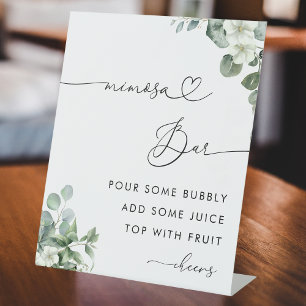 mimosa
Bar
POUR SOME BUBBLY
ADD SOME JUICE
TOP WITH FRUIT
cheers